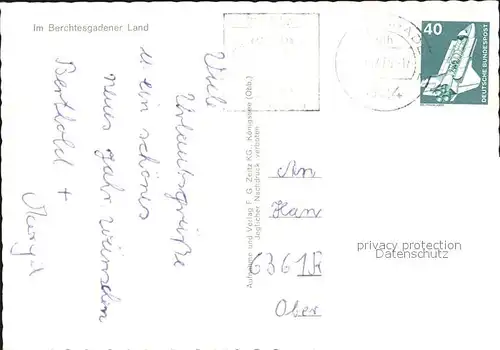 Im Berchtesgadener Land
Viele
Urlaubsgrüße
u ein schönes
neues Jahr wünschen
Berthold +
Margit
Aufnahme und Verlag F. G. Zeitz KG., Königssee (Obb.)
Jeglicher Nachdruck verboten
40
DEUTSCHE BUNDESPOST
An
Han
6361 R
Ober
privacy protection
Datenschutz